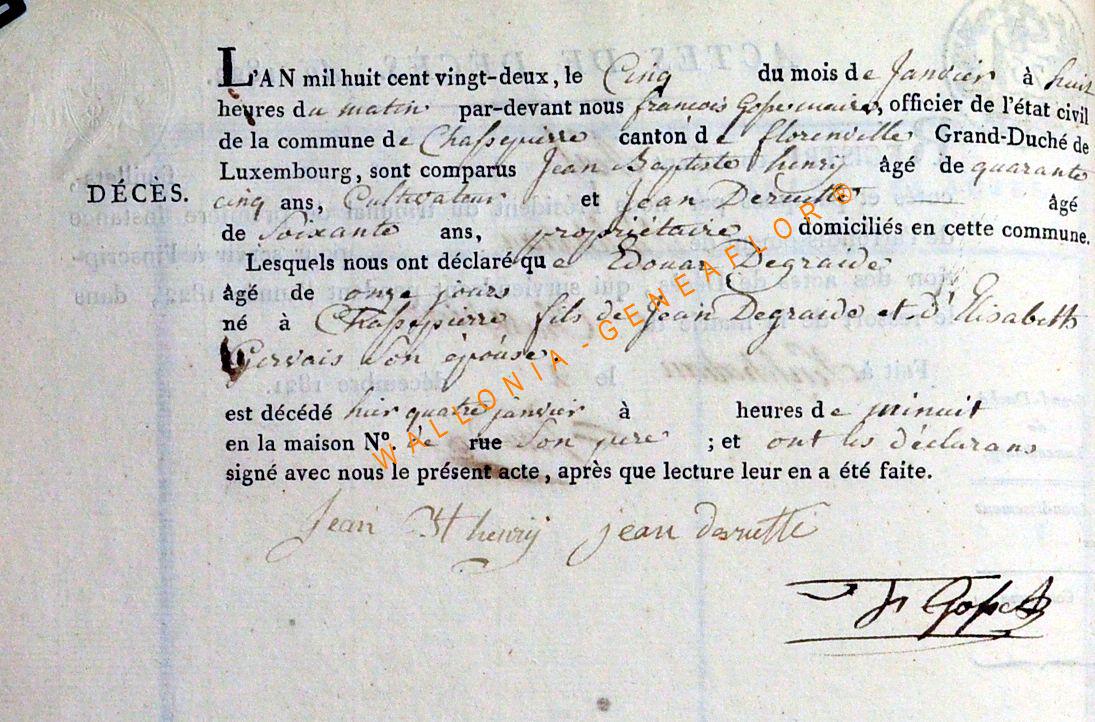 L'AN mil huit cent vingt-deux, le Cinq du mois de Janvier à huit
heures du matin par-devant nous francois Gope maire, officier de l'état civil
de la commune de Chassepierre canton de florenville Grand-Duché de
Luxembourg, sont comparus Jean Baptiste henry âgé de quarante
DÉCÈS.
cinq ans, Cultivateur et Jean Deruette âgé
de Soixante ans, propriétaire domiciliés en cette commune.
Lesquels nous ont déclaré que Edouar Degraide
âgé de onze jours
né à Chassepierre fils de Jean Degraide et d'Elisabeth
Gervais Son épouse.
est décédé hier quatre janvier à heures de minuit
en la maison N°. de rue Son pere ; et ont les déclarans
signé avec nous le présent acte, après que lecture leur en a été faite.
Jean Bt henry jean deruette
fr Gope
WALLONIA-GENEAFLOR©